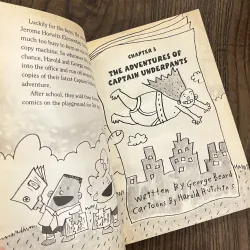 Luckily for the boys, the
Jerome Horwitz Elementary
much too busy to keep
copy machine. So whenever
chance, Harold and George
into the office and run off
copies of their latest Captain
adventure.
After school, they sold their
comics on the playground for
CHAPTER 3
THE ADVENTURES OF
CAPTAIN UNDERPANTS
Written By George Beard
Cartoons By Harold Hutchins